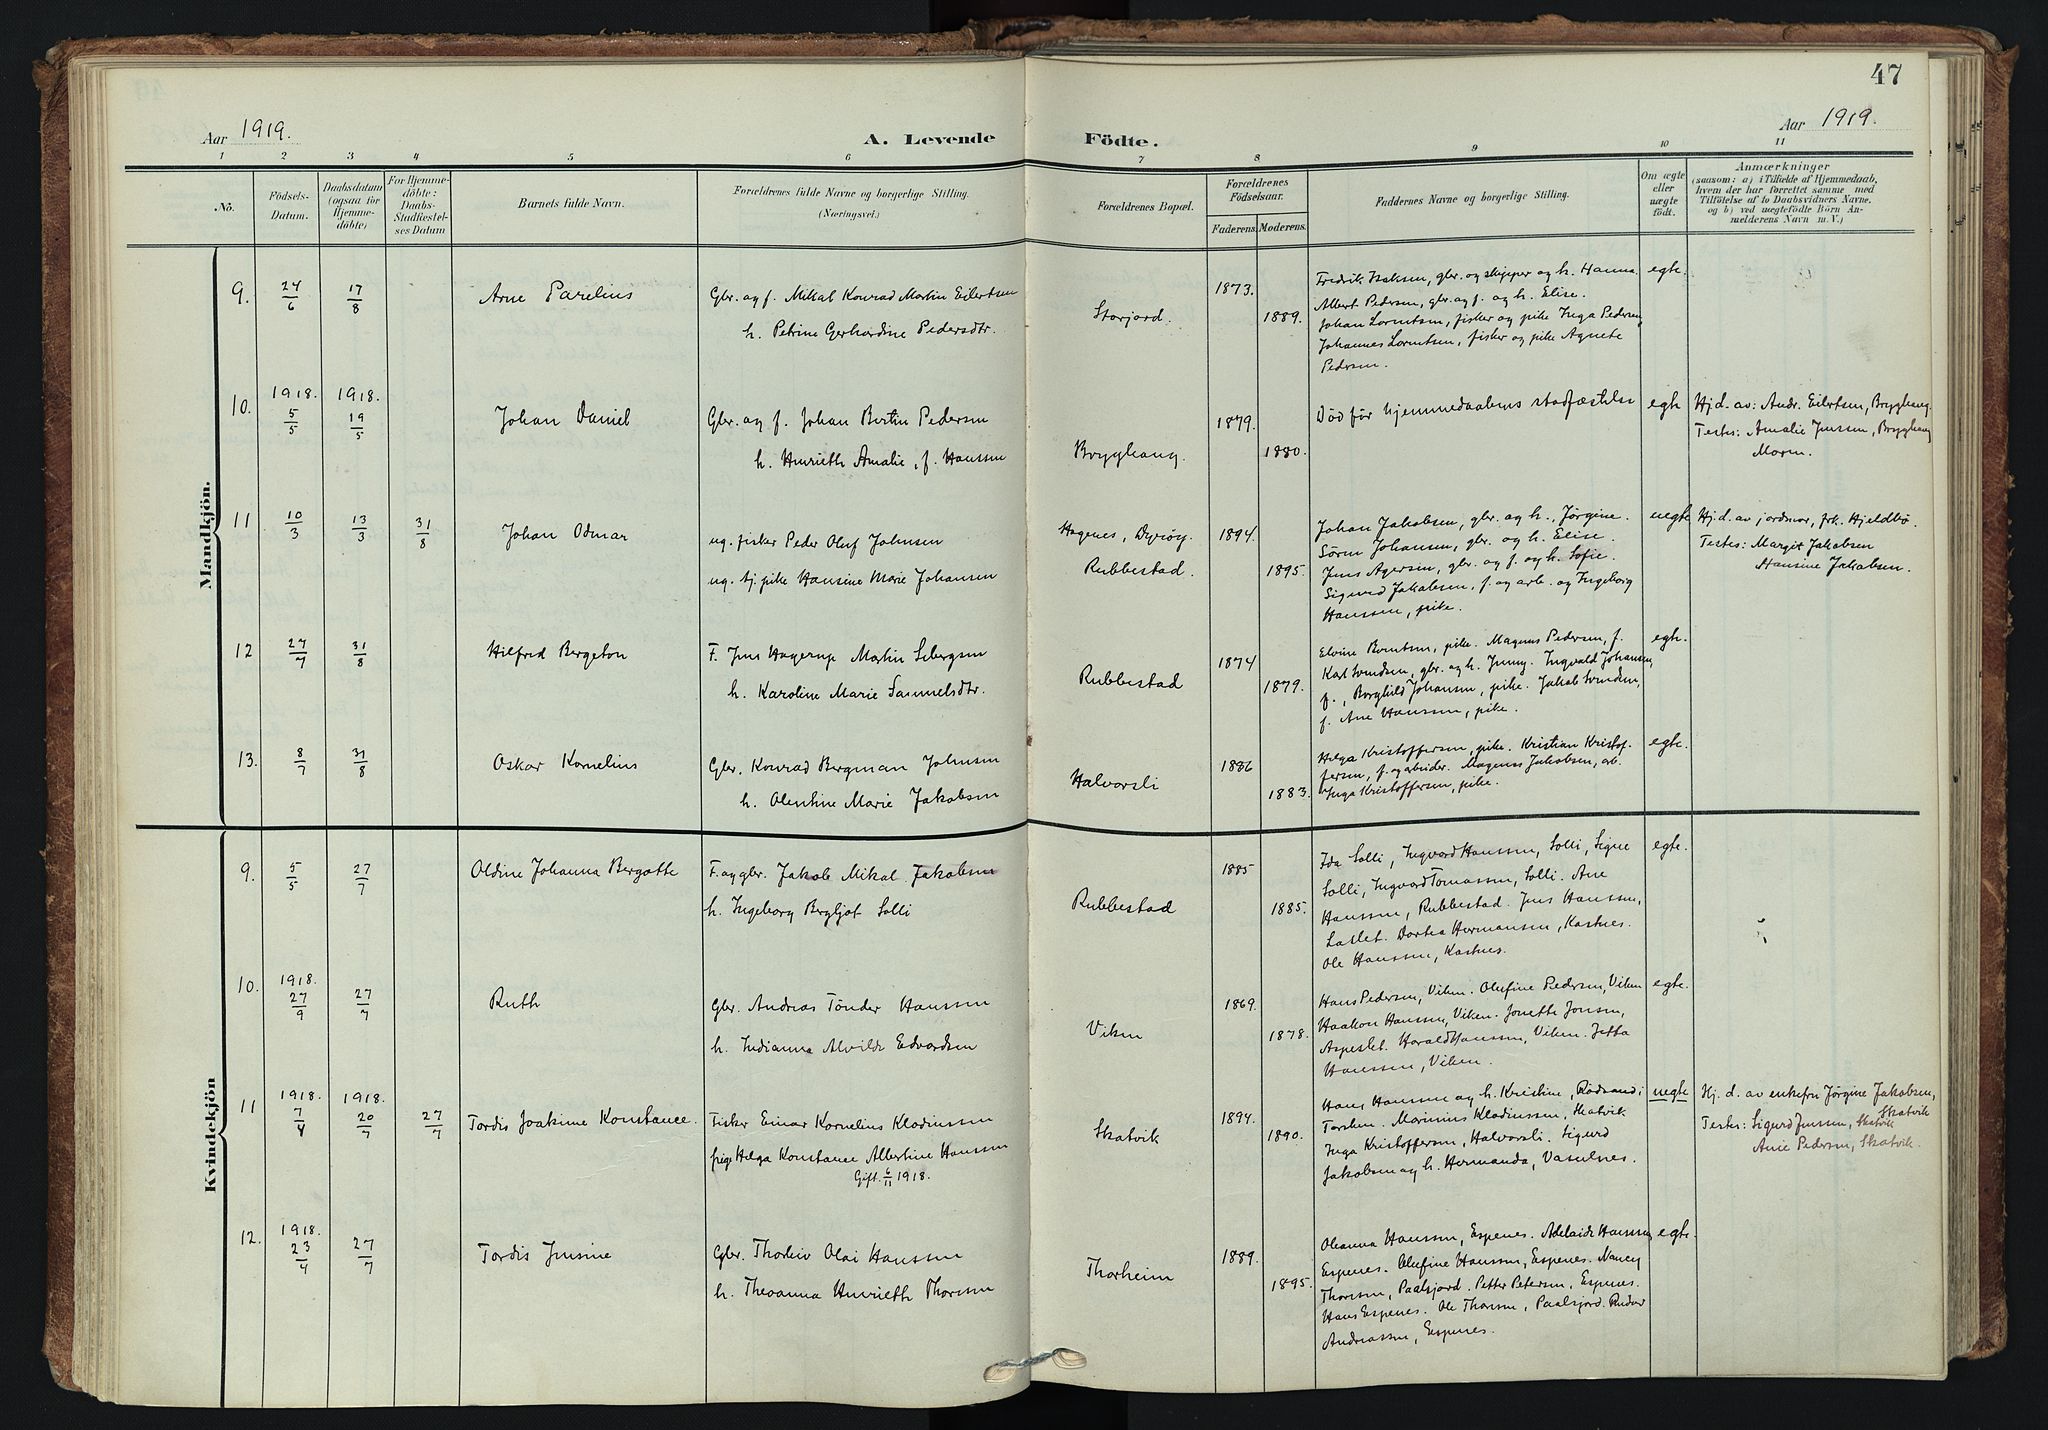 47
Aar 1919.
A. Levende Födte.
Aar 1919.
1 2 3 4 5 6 7 8 9 10 11
No.
Födsels-
Datum.
Daabsdatum
(ogsaa for
Hjemme-
döbte)
For Hjemme-
döbte:
Daabs-
Stadfæstel-
ses Datum
Barnets fulde Navn.
Forældrenes fulde Navne og borgerlige Stilling.
(Næringsvei.)
Forældrenes Bopæl.
Forældrenes
Födselsaar.
Faderens. Moderens.
Faddernes Navne og borgerlige Stilling.
Om ægte
eller
uægte
födt.
Anmærkninger
(saasom: a) i Tilfælde af Hjemmedaab,
hvem der har forrettet samme med
Tilföielse af to Daabsvidners Navne.
og b) ved uegtefödte Börn An-
melderens Navn m. V.)
Mandkjön.
9. 24/6 17/8 Arne Parelius
Gbr. og f. Mikal Konrad Martin Eilertsen
h. Petrine Gerhardine Pedersdtr.
Storjord.
1873.
1889.
Fredrik Isaksen, gbr. og skipper og h. Hanna.
Albert Pedersen, gbr. og f. og h. Elise.
Johan Lorentsen, fisker og pike Inga Pedersen,
Johannes Lorentsen, fisker og pike Agnete
Pedersen.
egte.
10. 1918. 5/5 1918. 19/5 Johan Daniel
Gbr. og f. Johan Bertin Pedersen
h. Henrieth Amalie, f. Hanssen
Brygghaug.
1879.
1880.
Død før hjemmedaabens stadfæstelse
egte
Hj.d. av: Andr. Eilertsen, Brygghaug.
Testes: Amalie Jenssen, Brygghaug
Moren.
11 10/3 13/3 31/8 Johan Odmar
ug. fisker Peder Oluf Johnsen
ug. tj. pike Hansine Marie Johansen
Hagenes, Dyrøy.
Rubbestad.
1894.
1895.
Johan Jakobsen, gbr. og h., Jørgine.
Søren Johansen, gbr. og h. Elise.
Jens Agersen, gbr. og f. og h. Sofie.
Sigurd Jakobsen, f. og arb. og Ingeborg
Hanssen, pike.
uegte
Hj.d. av jordmor, frk. Hjeldbø.
Testes: Margit Jakobsen
Hansine Jakobsen.
12 27/7 31/8 Hilfred Bergeton
F. Jens Hagerup Martin Sebergsen
h. Karoline Marie Samuelsdtr.
Rubbestad
1874
1879.
Elvine Berntsen, pike. Magnus Pedersen, f.
Karl Svendsen, gbr. og h. Jenny. Ingvald Johansen,
f., Borghild Johansen, pike. Jakob Svendsen,
f. Ane Hanssen, pike.
egte.
13. 8/7 31/8 Oskar Kornelius
Gbr. Konrad Bergman Johnsen
h. Olentine Marie Jakobsen
Halvorsli
1886
1883.
Helga Kristoffersen, pike. Kristian Kristof-
fersen, f. og arbeider. Magnus Jakobsen, arb.
Inga Kristoffersen, pike.
egte.
Kvindekjön
9. 5/5 27/7 Oldine Johanna Bergotte
F. og gbr. Jakob Mikal Jakobsen
h. Ingeborg Bergljot Solli
Rubbestad
1885
1885.
Ida Solli, Ingvard Hanssen, Solli, Signe
Solli, Ingvard Tomassen, Solli. Ane
Hanssen, Rubbestad. Jens Hanssen,
Lallet. Dortea Hermansen, Kastnes.
Ole Hanssen, Kastnes.
egte.
10. 1918. 27/9 27/7 Ruth
Gbr. Andreas Tønder Hanssen
h. Indianna Alvilde Edvardsen
Viken
1869.
1878.
Hans Pedersen, Viken. Olufine Pedersen, Viken
Haakon Hanssen, Viken. Jonette Jonsen,
Aspeslet. Harald Hanssen, Viken. Jetta
Hanssen, Viken.
egte.
11 1918. 7/4 1918. 20/7 27/7 Tordis Joakime Konstance.
Fisker Einar Kornelius Kladiussen
pige Helga Konstance Albertine Hanssen
Gift. 6/11 1918.
Skatvik
1894.
1890.
Hans Hanssen og h. Kristine, Rødsand i
Torsken. Marinius Kladiussen, Skatvik
Inga Kristoffersen, Halvorsli. Sigurd
Jakobsen og h. Hermanda, Vaselnes.
uegte
Hj. d. av enkefru Jørgine Jakobsen,
Skatvik
Testes: Sigurd Jenssen, Skatvik
Anie Pedersen, Skatvik.
12. 1918. 23/4 27/7 Tordis Jensine
Gbr. Thorleiv Olai Hanssen
h. Theoanna Henrieth Thorsen
Thorheim
1889.
1895.
Oleanna Hanssen, Espenes. Adelaide Hanssen,
Espenes. Olufine Hanssen, Espenes. Nancy
Thorssen, Paalsjord. Petter Petersen, Espenes.
Hans Espenes. Ole Thorssen, Paalsjord. Reidar
Andreassen, Espenes.
egte.